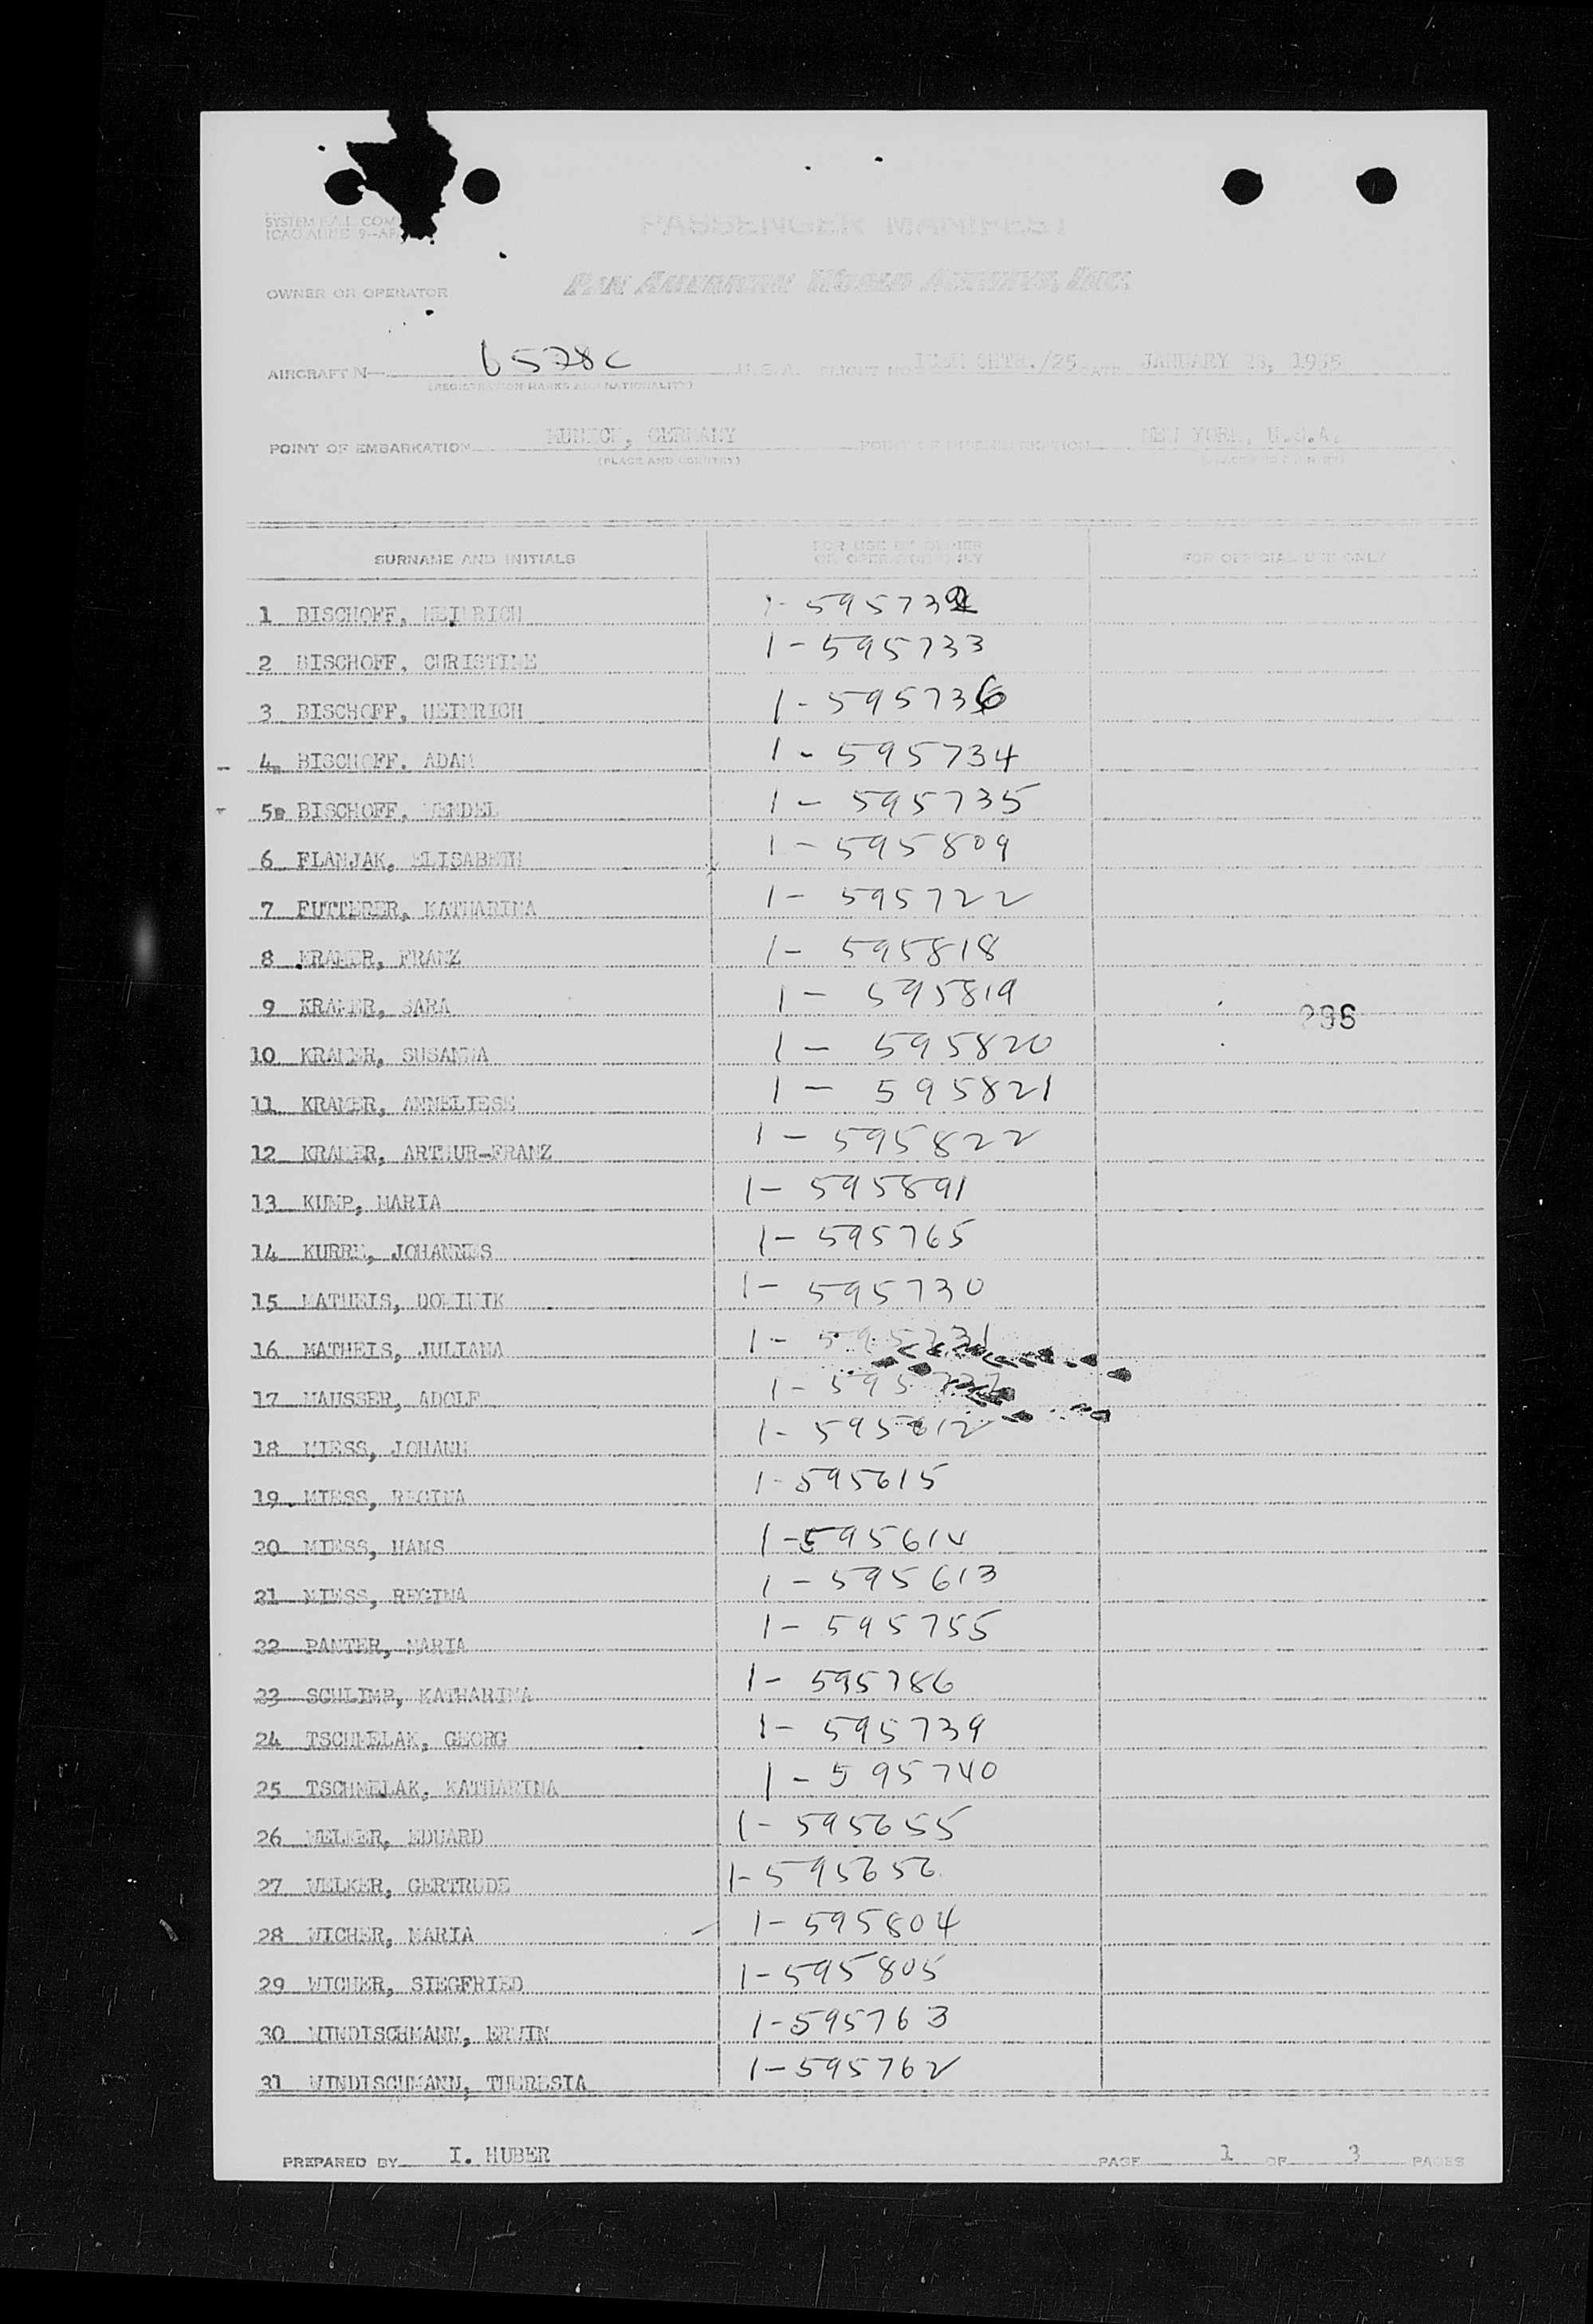 SYSTEM F.A.L. COM
ICAO ANNE 9-AP
PASSENGER MANIFEST
OWNER OR OPERATOR PAN AMERICAN WORLD AIRWAYS, INC.
AIRCRAFT N— 6578C U.S.A. FLIGHT NO. CHTR./25 DATE JANUARY 28, 1955
(REGISTRATION MARKS AND NATIONALITY)
POINT OF EMBARKATION MUNICH, GERMANY POINT OF DISEMBARKATION NEW YORK, U.S.A.
(PLACE AND COUNTRY) (PLACE AND COUNTRY)
SURNAME AND INITIALS FOR USE BY OWNER OR OPERATOR ONLY FOR OFFICIAL USE ONLY
1 BISCHOFF, HEINRICH 1-595732
2 BISCHOFF, CHRISTINE 1-595733
3 BISCHOFF, HEINRICH 1-595736
4 BISCHOFF. ADAM 1-595734
5 BISCHOFF, WENDEL 1-595735
6 FLANJAK, ELISABETH 1-595809
7 FUTTERER, KATHARINA 1-595722
8 KRAMER, FRANZ 1-595818
9 KRAMER, SARA 1-595819
296
10 KRAMER, SUSANNA 1-595820
11 KRAMER, ANNELIESE 1-595821
12 KRAMER, ARTHUR-FRANZ 1-595822
13 KUMP, MARIA 1-595891
14 KURRE, JOHANNES 1-595765
15 MATHEIS, DOMINIK 1-595730
16 MATHEIS, JULIANA 1-595731
17 MAUSSER, ADOLF 1-595
18 MIESS, JOHANN 1-595612
19 MIESS, REGINA 1-595615
20 MIESS, HANS 1-595614
21 MIESS, REGINA 1-595613
22 PANTER, MARIA 1-595755
23 SCHLIMP, KATHARINA 1-595786
24 TSCHMELAK, GEORG 1-595739
25 TSCHMELAK, KATHARINA 1-595740
26 WELKER, EDUARD 1-595655
27 WELKER, GERTRUDE 1-595656
28 WICHER, MARIA 1-595804
29 WICHER, SIEGFRIED 1-595805
30 WINDISCHMANN, ERWIN 1-595763
31 WINDISCHMANN, THERESIA 1-595762
PREPARED BY I. HUBER PAGE 1 OF 3 PAGES